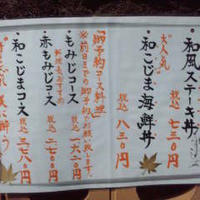 和風ステーキ丼
税込 七三〇円
大人気
・和こじま海鮮丼
税込 八三〇円
御予約コース料理
※前日までの御予約お願い致します
・もみじコース
税込 一六二〇円
料理長おすすめ
・赤もみじコース
税込 二七〇〇円
・和こじまコース
税込 三七八〇円